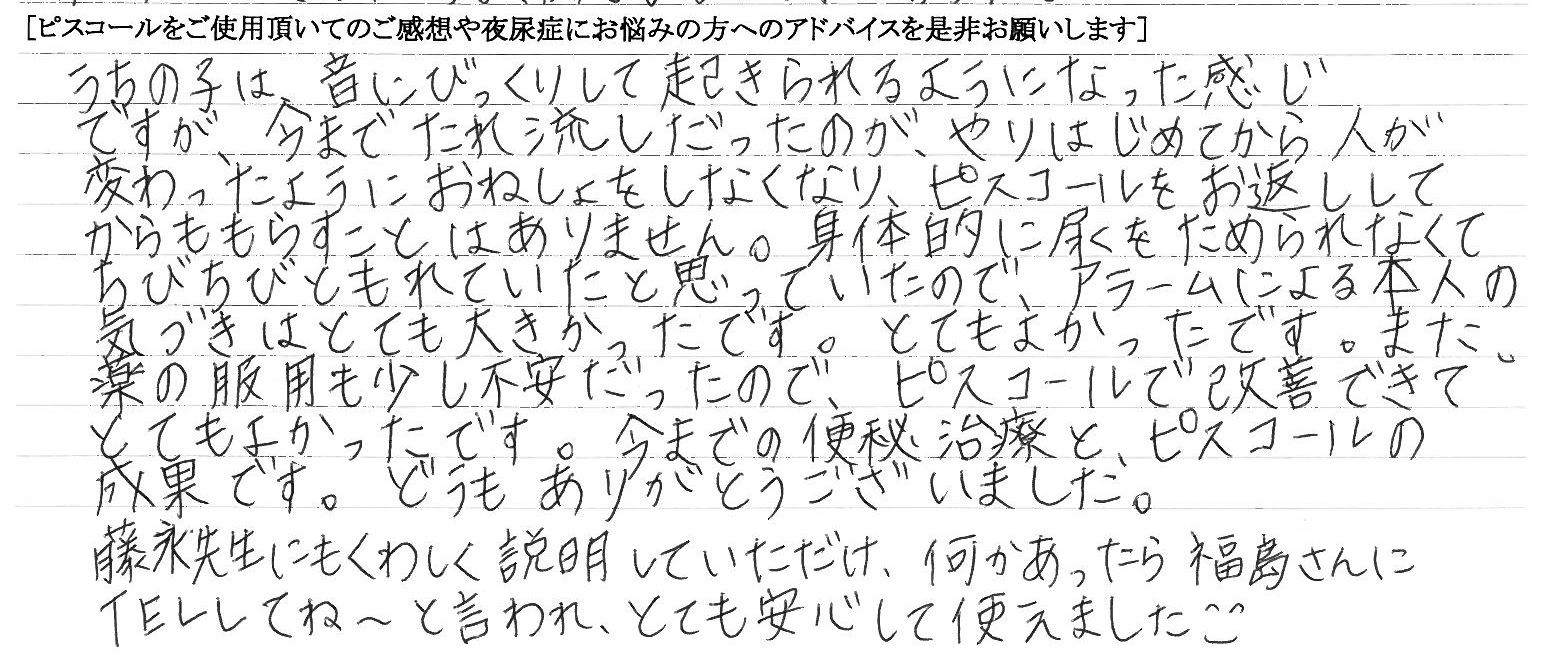 [ピスコールをご使用頂いてのご感想や夜尿症にお悩みの方へのアドバイスを是非お願いします]
うちの子は、音にびっくりして起きられるようになった感じ
ですが、今までたれ流しだったのが、やりはじめてから人が
変わったようにおねしょをしなくなり、ピスコールをお返しして
からももらすことはありません。身体的に尿くをためられなくて
ちびちびともれていたと思っていたので、アラームによる本人の
気づきはとても大きかったです。とてもよかったです。また、
薬の服用も少し不安だったので、ピスコールで改善できて
とてもよかったです。今までの便秘治療と、ピスコールの
成果です。どうもありがとうございました。
藤永先生にもくわしく説明していただけ、何かあったら福島さんに
TELしてね〜と言われ、とても安心して使えました